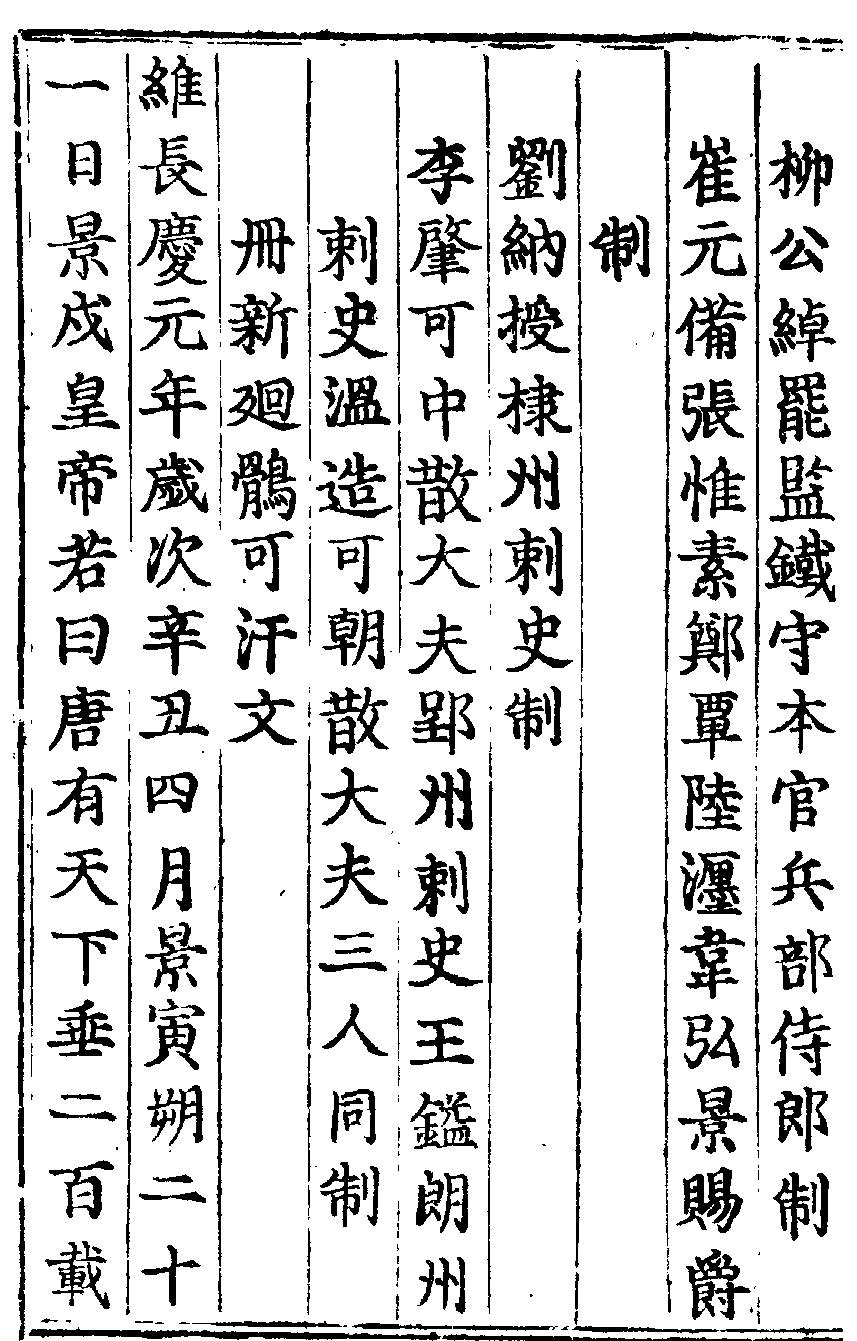 柳公綽罷监鐵守本官兵部侍郎制
崔元備張惟素鄭覃陸瀍韋弘景賜爵
制
劉納授棣州刺史制
李肇可中散大夫郢州刺史王鎰朗州
刺史溫造可朝散大夫三人同制
冊新廻鶻可汗文
維長慶元年歲次辛丑四月景寅朔二十
一日景戌皇帝若曰唐有天下垂二百載